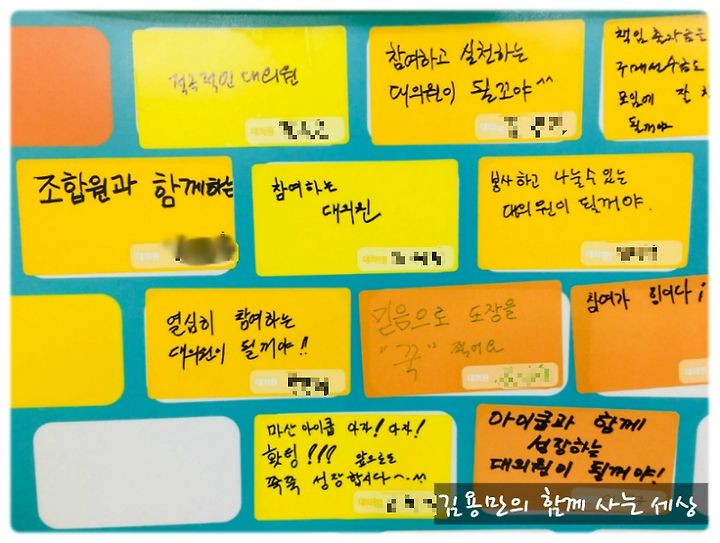 적극적인 대의원
대의원
참여하고 실천하는
대의원이 될꼬야^^
대의원
책임
모임에 잘
될꺼야
조합원과 함께하는
대의원
참여하는
대의원
대의원
봉사하고 나눌수있는
대의원이 될꺼야.
대의원
열심히 참여하는
대의원이 될꺼야!!
대의원
믿음으로 도장을
"꾹" 찍어요
대의원
참여가 힘이다;
마산아이쿱 아자! 아자!
홧팅!!! 앞으로도
쭉쭉 성장합시다~.^^
대의원
아이쿱과 함께
성장하는
대의원이 될꺼야!
김용만의 함께 사는 세상